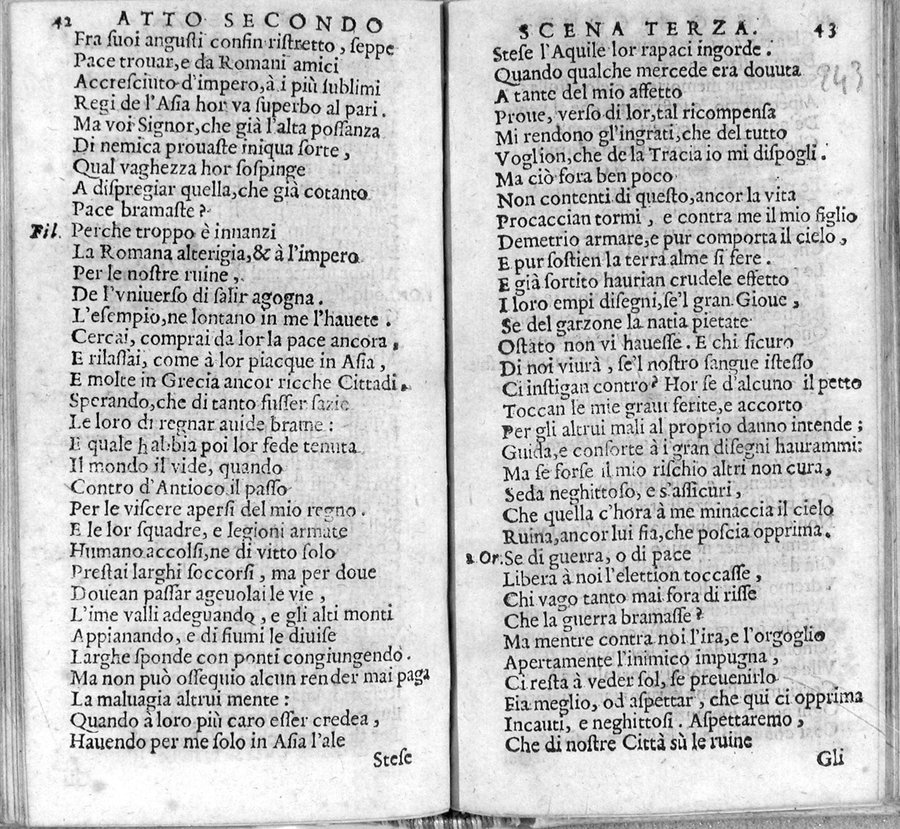 42 ATTO SECONDO
Fra ſuoi anguſti confin riſtretto, ſeppe
Pace trouar, e da Romani amici
Accreſciuto d'impero, à i più ſublimi
Regi de l'Aſia hor va ſuperbo al pari.
Ma voi Signor, che già l'alta poſſanza
Di nemica prouaſte iniqua ſorte,
Qual vaghezza hor ſoſpinge
A diſpregiar quella, che già cotanto
Pace bramaſte?
Fil. Perche troppo è innanzi
La Romana alterigia, & à l'impero
Per le noſtre ruine,
De l'vniuerſo di ſalir agogna.
L'eſempio, ne lontano in me l'hauete.
Cercai, comprai da lor la pace ancora,
E rilaſſai, come à lor piacque in Aſia,
E molte in Grecia ancor ricche Cittadi.
Sperando, che di tanto fuſſer ſazie
Le loro di regnar auide brame:
E quale habbia poi lor fede tenuta
Il mondo il vide, quando
Contro d'Antioco il paſſo
Per le viſcere aperſi del mio regno.
E le lor ſquadre, e legioni armate
Humano accolſi, ne di vitto ſolo
Preſtai larghi ſoccorſi, ma per doue
Douean paſſar ageuolai le vie,
L'ime valli adeguando, e gli alti monti
Appianando, e di fiumi le diuiſe
Larghe ſponde con ponti congiungendo.
Ma non può oſſequio alcun render mai paga
La maluagia altrui mente:
Quando à loro più caro eſſer credea,
Hauendo per me ſolo in Aſia l'ale
Steſe
SCENA TERZA. 43
Steſe l'Aquile lor rapaci ingorde.
Quando qualche mercede era douuta
A tante del mio affetto
Proue, verſo di lor, tal ricompenſa
Mi rendono gl'ingrati, che del tutto
Voglion, che de la Tracia io mi diſpogli.
Ma ciò fora ben poco
Non contenti di queſto, ancor la vita
Procaccian tormi, e contra me il mio figlio
Demetrio armare, e pur comporta il cielo,
E pur ſoſtien la terra alme ſi fere.
E già ſortito haurian crudele effetto
I loro empi diſegni, ſe'l gran Gioue,
Se del garzone la natia pietate
Oſtato non vi haueſſe. E chi ſicuro
Di noi viurà, ſe'l noſtro ſangue iſteſſo
Ci inſtigan contro? Hor ſe d'alcuno il petto
Toccan le mie graui ferite, e accorto
Per gli altrui mali al proprio danno intende;
Guida, e conforte à i gran diſegni haurammi:
Ma ſe forſe il mio riſchio altri non cura,
Seda neghittoſo, e s'aſſicuri,
Che quella c'hora à me minaccia il cielo
Ruina, ancor lui fia, che poſcia opprima.
2 Or. Se di guerra, o di pace
Libera à noi l'elettion toccaſſe,
Chi vago tanto mai fora di riſſe
Che la guerra bramaſſe?
Ma mentre contra noi l'ira, e l'orgoglio
Apertamente l'inimico impugna,
Ci reſta à veder ſol, ſe preuenirlo
Fia meglio, od aſpettar, che qui ci opprima
Incauti, e neghittoſi. Aſpettaremo,
Che di noſtre Città sù le ruine
Gli
243